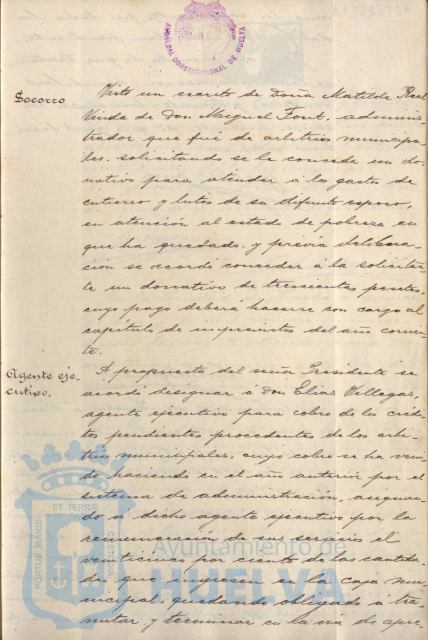 ALCALDIA CONSTITUCIONAL DE HUELVA
Socorro
Visto un escrito de Doña Matilde Real
Viuda de Don Manuel Font, adminis-
trador que fué de arbitrios municipa-
les, solicitando se le conceda un do-
nativo para atender á los gastos de
entierro y lutos de su difunto esposo,
en atención al estado de pobreza en
que ha quedado, y prévia delibera-
ción se acordó conceder á la solicitan-
te un donativo de trescientas pesetas,
cuyo pago deberá hacerse con cargo al
capítulo de imprevistos del año corrien-
te.
Agente eje-
cutivo.
A propuesta del señor Presidente se
acordó designar á Don Elías Villegas,
agente ejecutivo para cobro de los crédi-
tos pendientes procedentes de los arbi-
trios municipales, cuyo cobro se ha veni-
do haciendo en el año anterior por el
sistema de administración, asignan-
do á dicho agente ejecutivo por la
remuneración de su servicio el
veinticinco por ciento de las cantida-
des que ingresen en la caja mu-
nicipal, quedando obligado á tra-
mitar y terminar en la via de apre-
PORTUS MARIS ET TERRE
Ayuntamiento de
HUELVA